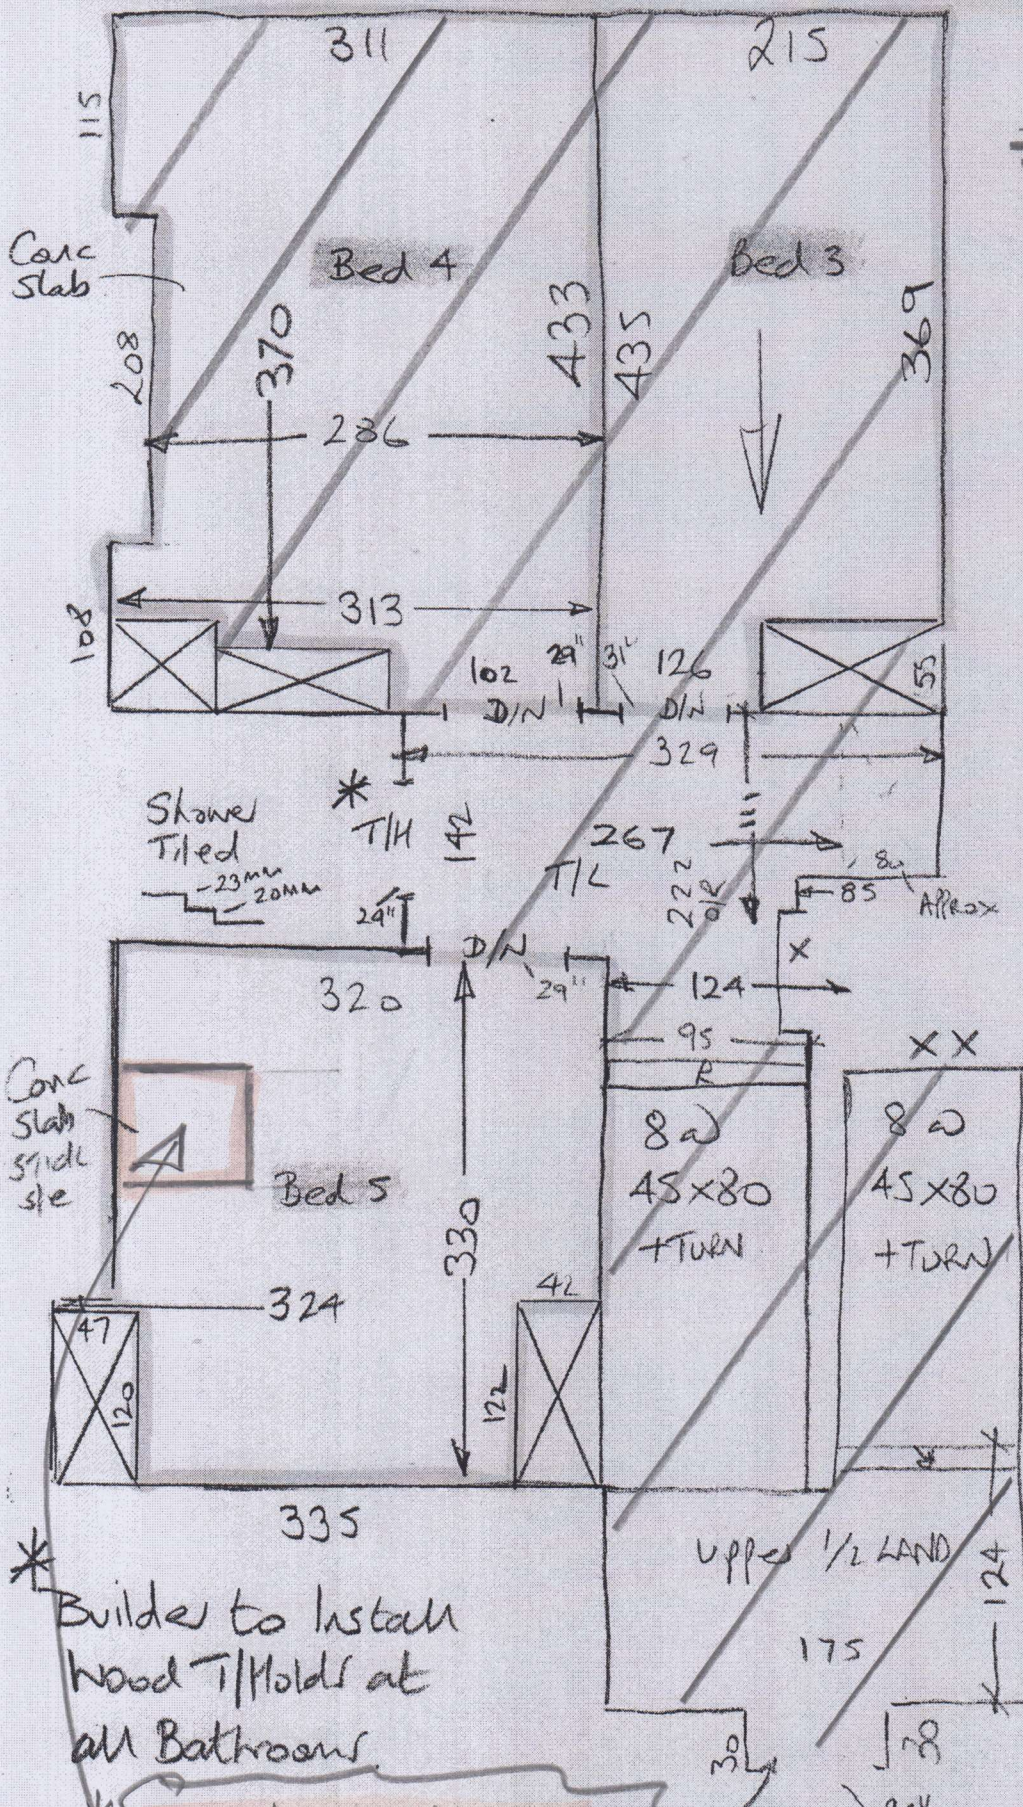 311
215
115
Conc
slab
Bed 4
Bed 3
208
370
433
435
369
286
313
108
102
29"
31"
126
D/N
D/N
55
329
*
T/H
142
Shower
Tiled
23mm
20mm
267
111
T/L
222
O/R
80
APPROX
85
29"
D/N
29"
X
320
124
95
R
XX
Conc
slab
stick
s/e
Bed 5
330
8 @
45x80
+TURN
8 @
45x80
+TURN
324
47
120
42
122
R
335
Upper 1/2 LAND
124
175
30
30
*
Builder to Install
Wood T/Holds at
all Bathrooms